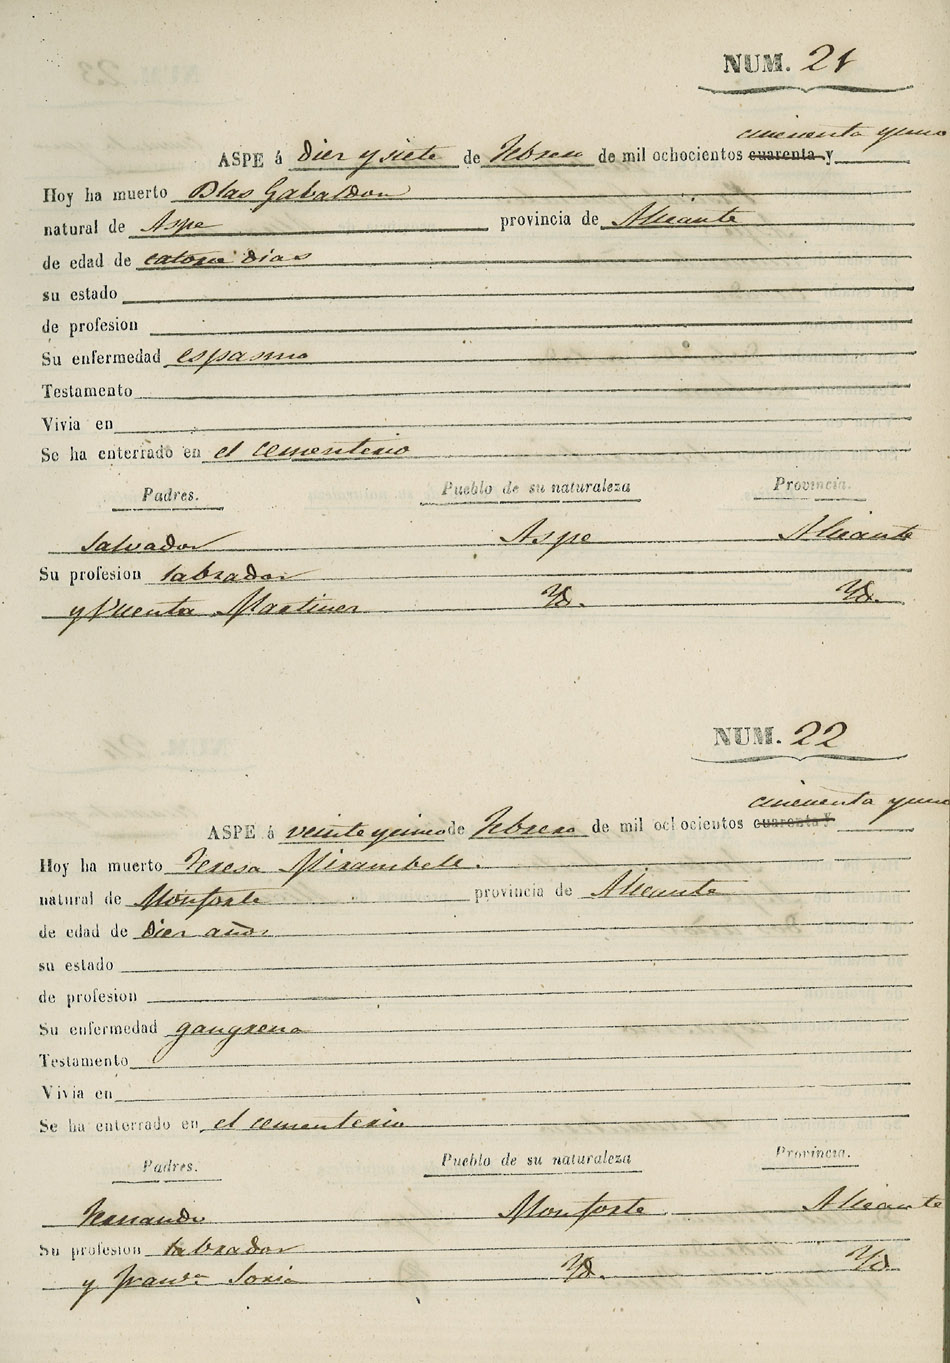 NUM. 21
cincuenta y uno
ASPE á diez y siete de Febrero de mil ochocientos cuarenta y
Hoy ha muerto Blas Gabaldon
natural de Aspe provincia de Alicante
de edad de catorce dias
su estado
de profesion
Su enfermedad espasmo
Testamento
Vivia en
Se ha enterrado en el cementerio
Padres. Pueblo de su naturaleza Provincia.
Salvador Aspe Alicante
Su profesion labrador
y Vicenta Martinez Yd. Yd.
NUM. 22
cincuenta y uno
ASPE á veinte y cinco de Febrero de mil ochocientos cuarenta y
Hoy ha muerto Teresa Mirambell.
natural de Monforte provincia de Alicante
de edad de Diez años
su estado
de profesion
Su enfermedad gangrena
Testamento
Vivia en
Se ha enterrado en el cementerio
Padres. Pueblo de su naturaleza Provincia.
Fernando Monforte Alicante
Su profesion labrador
y Franca Soria Yd. Yd.